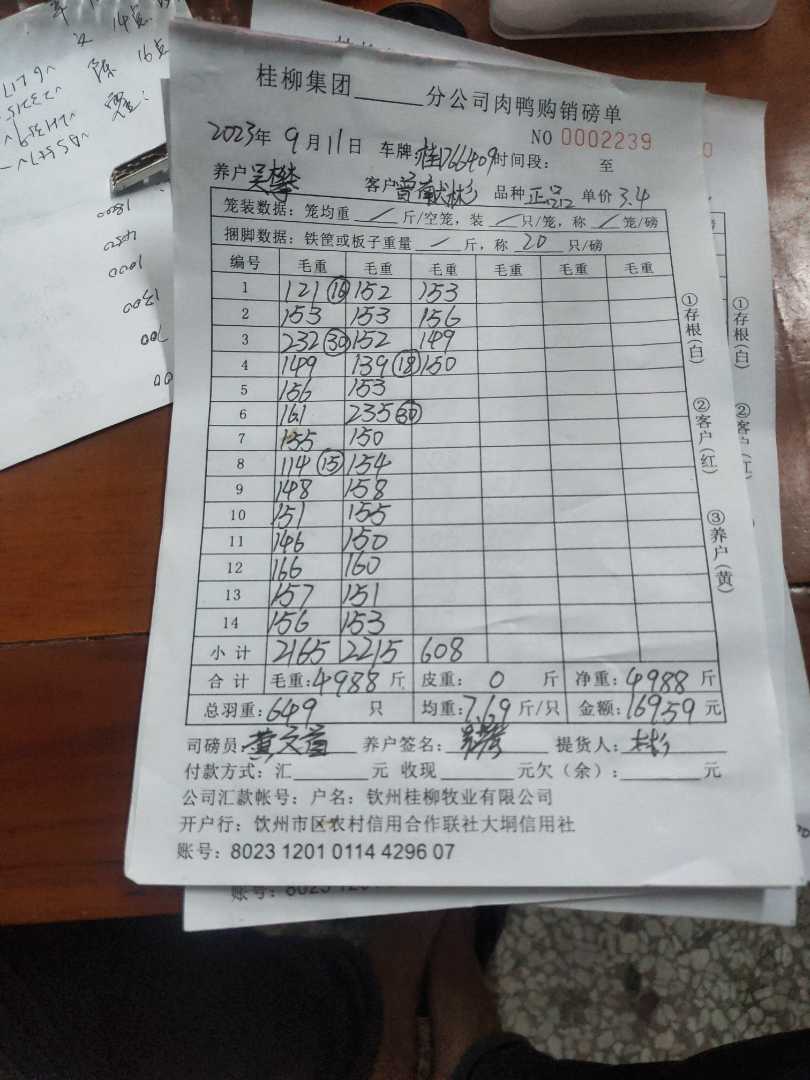 桂柳集团______分公司肉鸭购销磅单
NO 0002239
2023年 9月11日 车牌:桂D66409 时间段: 至
养户 吴攀 客户 曾献彬 品种 正品 单价 3.4
笼装数据:笼均重 / 斤/空笼,装 / 只/笼,称 / 笼/磅
捆脚数据:铁筐或板子重量 / 斤,称 20 只/磅
编号 毛重 毛重 毛重 毛重 毛重 毛重
1 121 ⑯ 152 153
2 153 153 156
3 232 ㉚ 152 149
4 149 139 ⑱ 150
5 156 153
6 161 235 ㉚
7 155 150
8 114 ⑮ 154
9 148 158
10 151 155
11 146 150
12 166 160
13 157 151
14 156 153
小计 2165 2215 608
合计 毛重:4988斤 皮重: 0 斤 净重:4988斤
总羽重:649 只 均重:7.69斤/只 金额:16959元
司磅员 养户签名: 提货人:
付款方式:汇______元 收现______元欠(余):______元
公司汇款帐号:户名:钦州桂柳牧业有限公司
开户行:饮州市区农村信用合作联社大垌信用社
账号:8023 1201 0114 4296 07
①存根(白)
②客户(红)
③养户(黄)
①存根(白)
②客
14点
16点